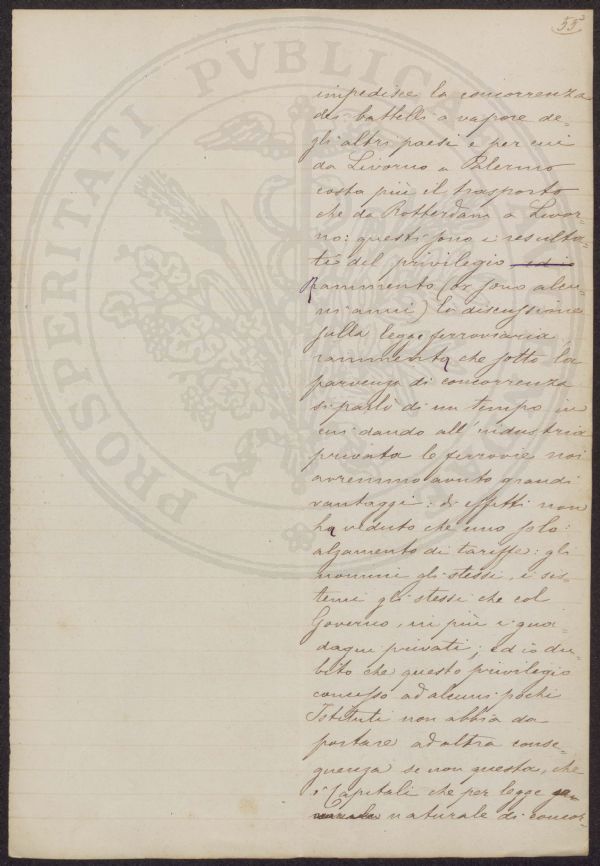 55
impedisce la concorrenza
dei battelli a vapore de-
gli altri paesi e per cui
da Livorno a Palermo
costa più il trasporto
che da Rotterdam a Livor-
no: questi sono i resulta-
ti del privilegio ed io
Rammento (or sono alcu-
ni anni) la discussione
sulla legge ferroviaria,
rammenta che sotto la
parvenza di concorrenza
si parlò di un tempo in
cui dando all'industria
privata le ferrovie noi
avremmo avuto grandi
vantaggi: di effetti non
ha veduto che uno solo:
alzamento di tariffe: gli
uomini gli stessi, i sis-
temi gli stessi che col
Governo, in più i gua-
dagni privati; ed io du-
bito che questo privilegio
concesso ad alcuni pochi
Istituti non abbia da
portare ad altra conse-
guenza se non questa, che
i Capitali che per legge
naturale di concor-